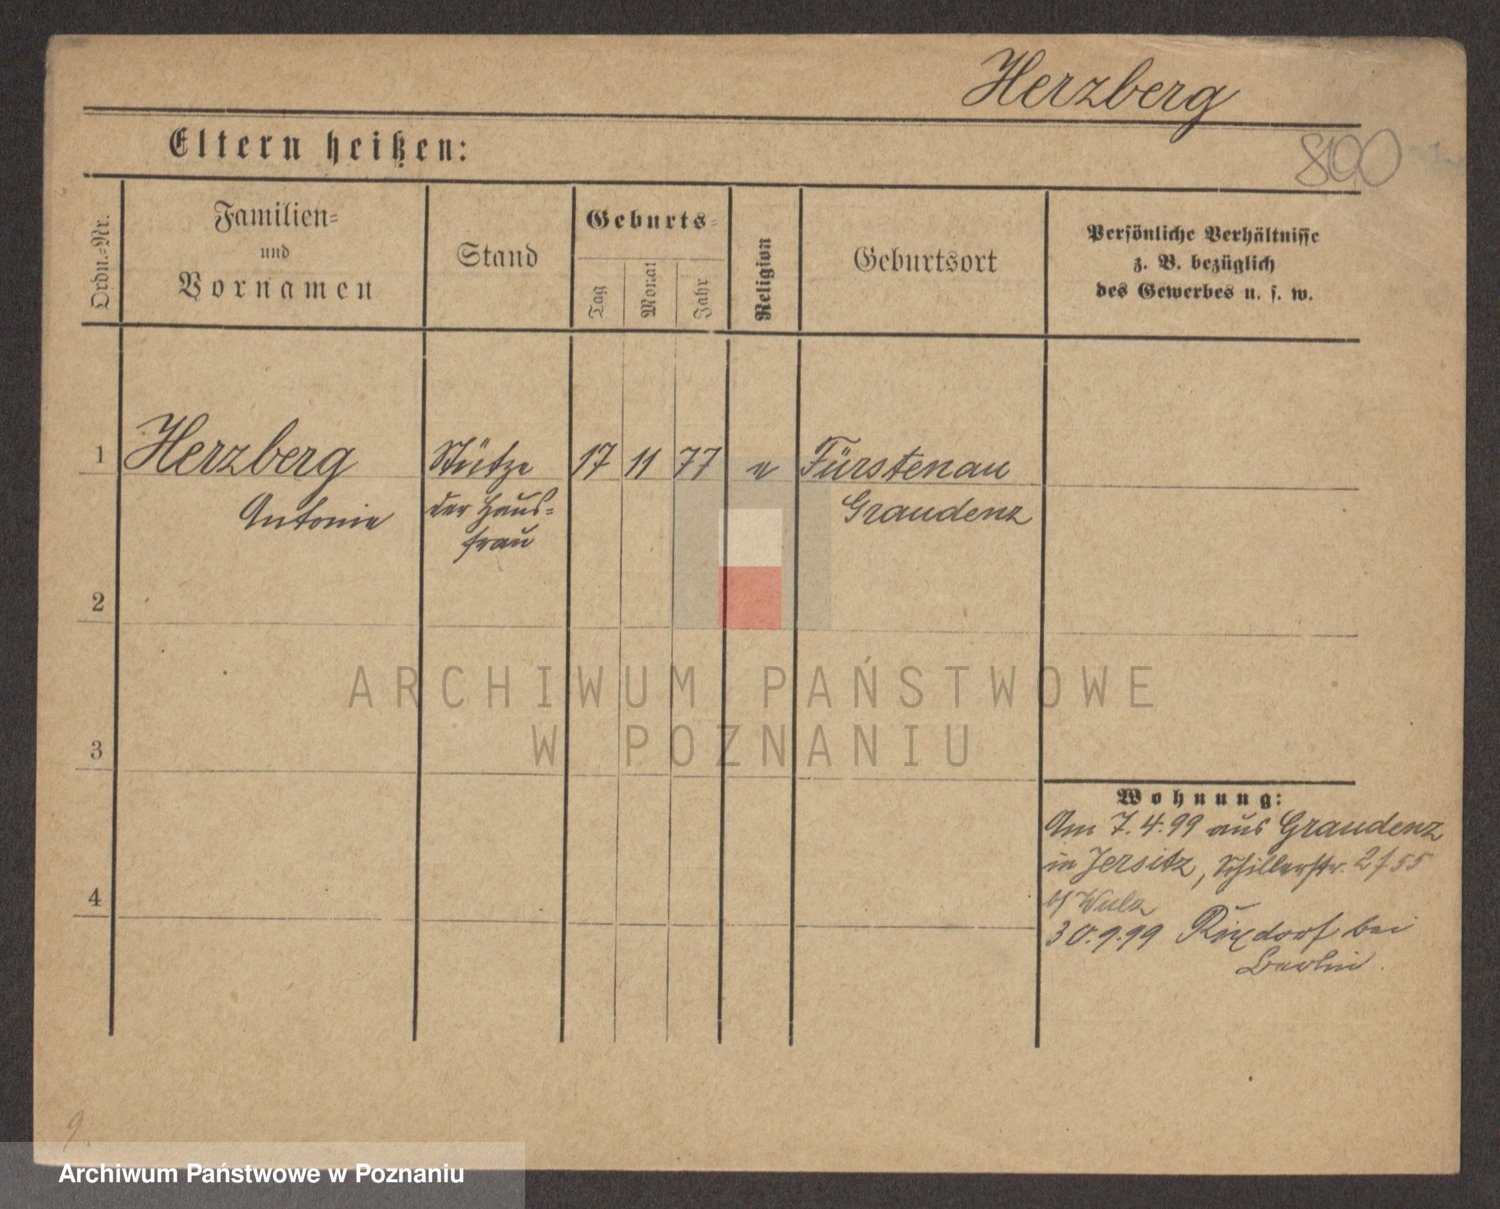 Herzberg
800
Eltern heißen:
Ordn.-Nr.
Familien-
und
Vornamen
Stand
Geburts-
Tag
Monat
Jahr
Religion
Geburtsort
Persönliche Verhältnisse
z. B. bezüglich
des Gewerbes u. s. w.
1 Herzberg Stütze 17 11 77 Fürstenau
Antonie der Haus- Graudenz
frau
2
ARCHIWUM PAŃSTWOWE
W POZNANIU
3
Wohnung:
Am 7.4.99 aus Graudenz
in Jersitz, Schillerstr. 2
4
30.9.99 Rixdorf bei
Berlin.
9.
Archiwum Państwowe w Poznaniu